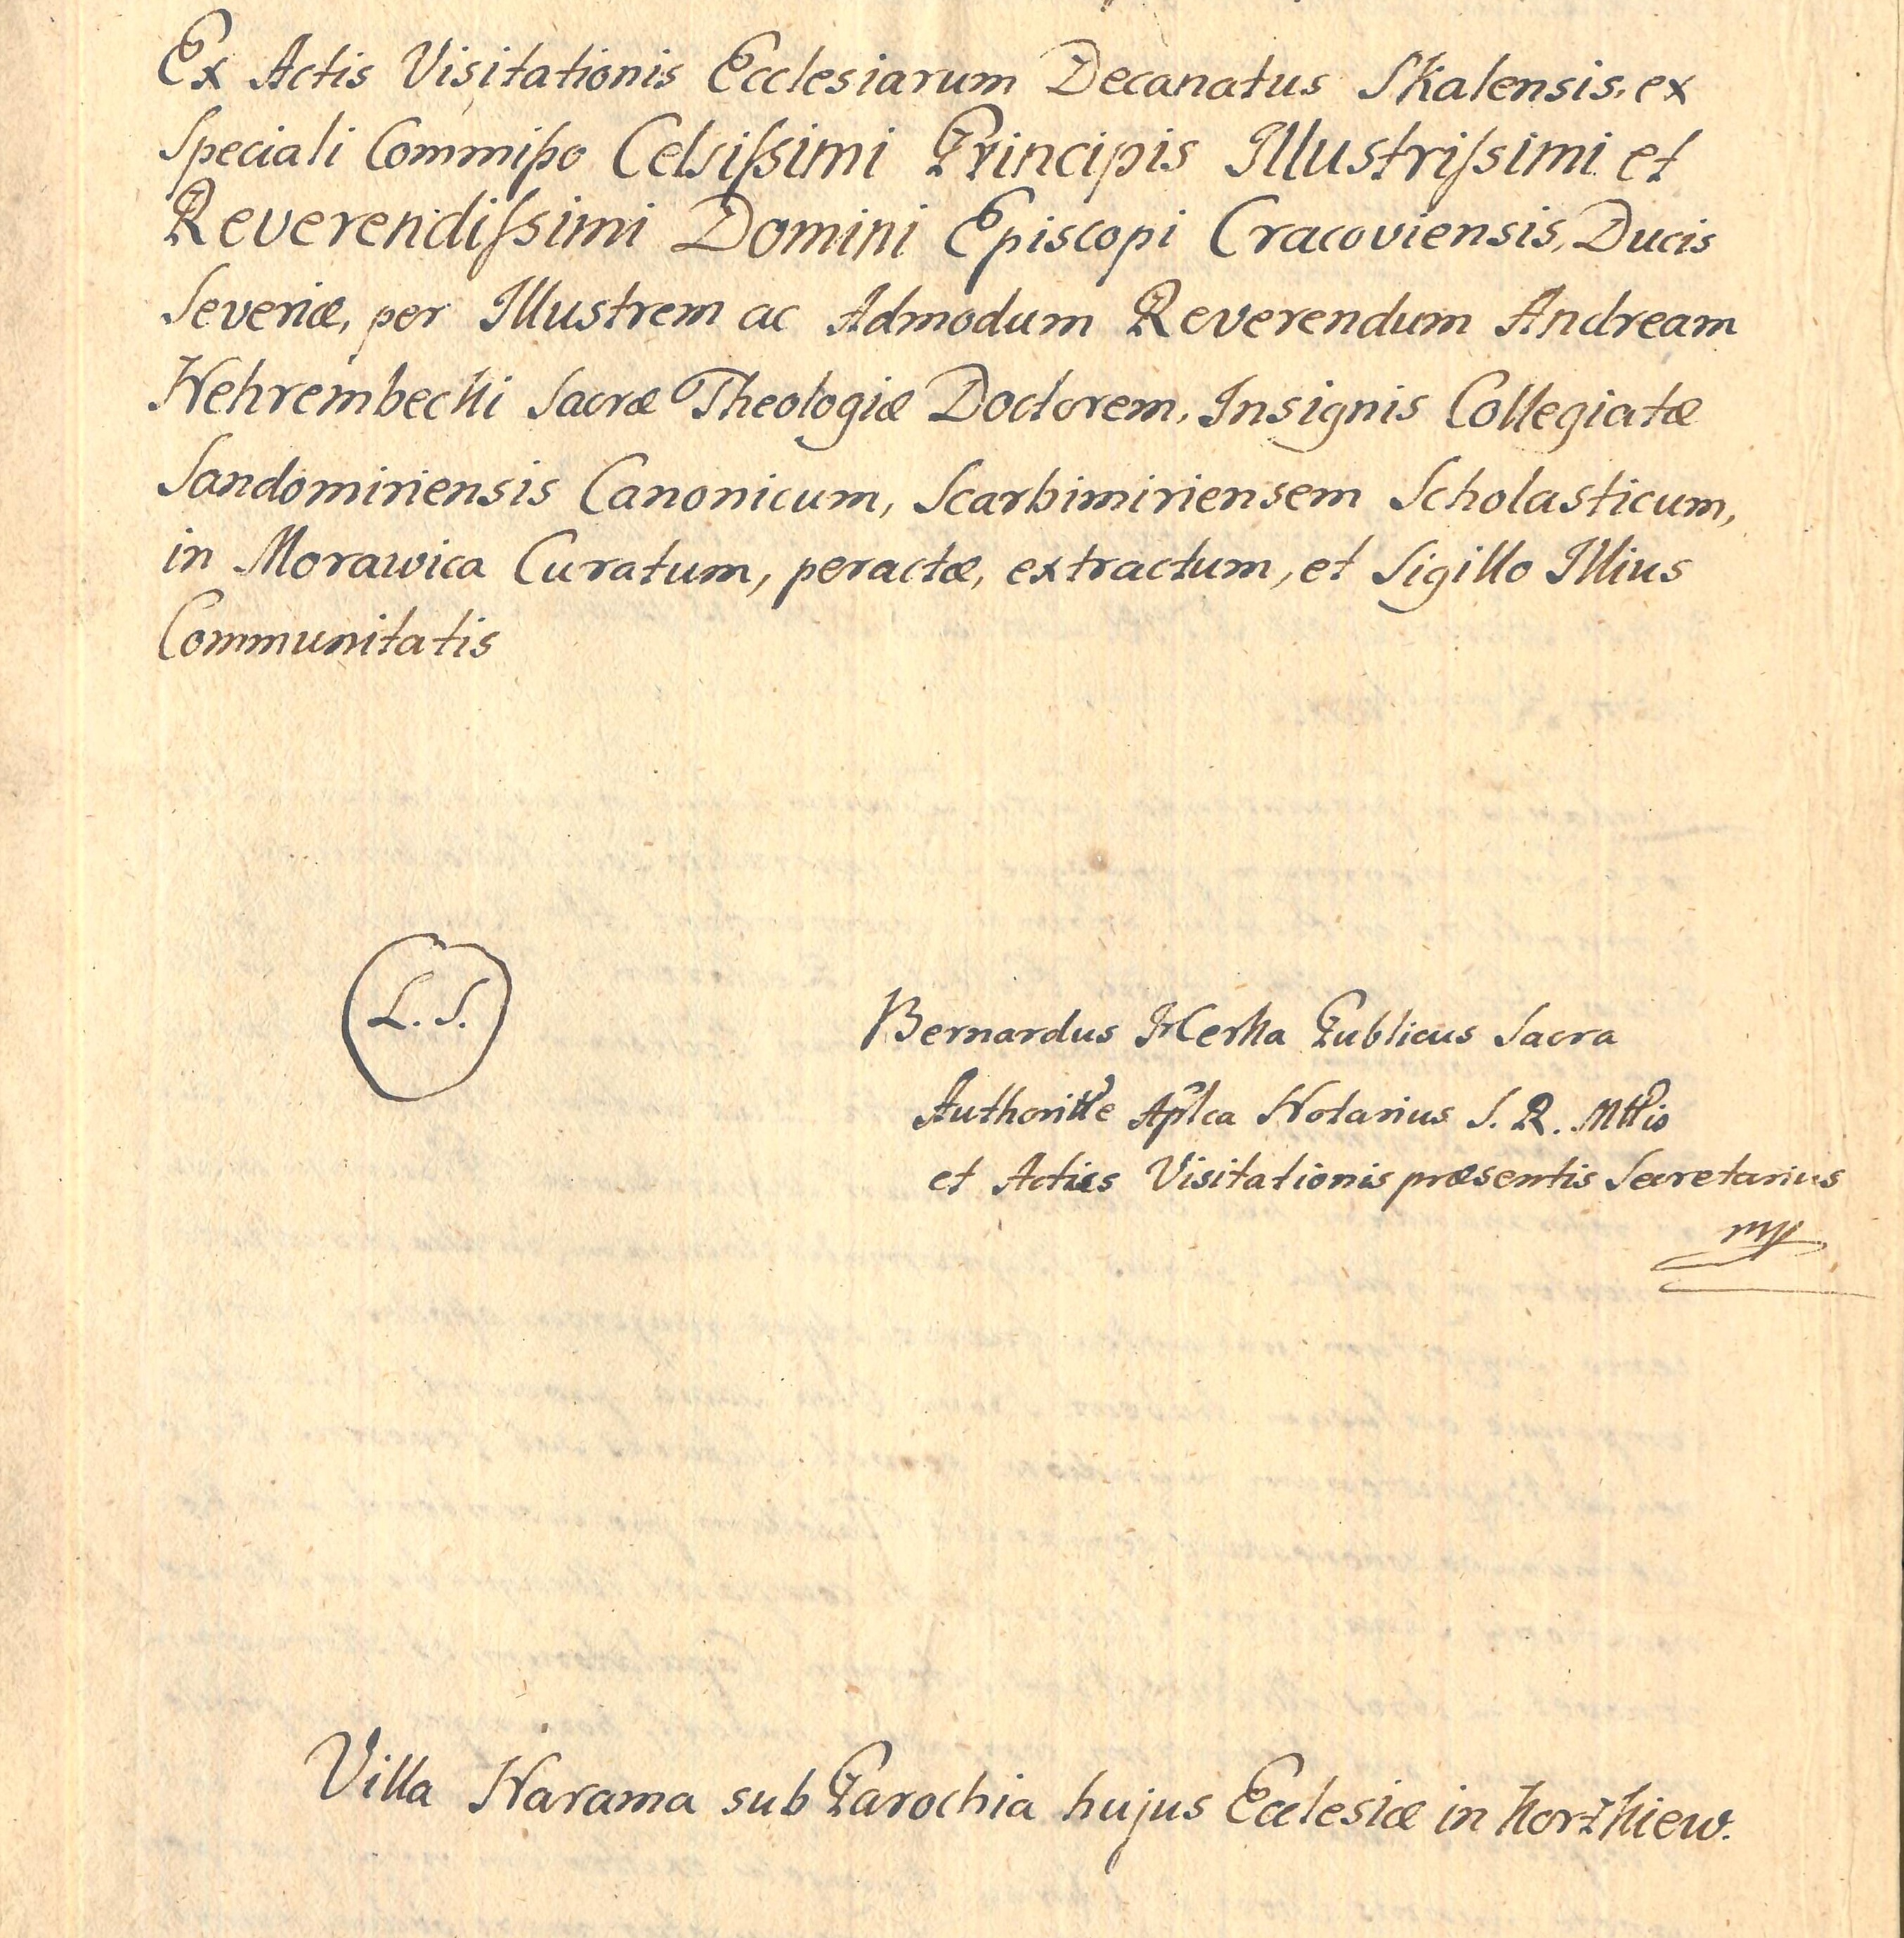 Ex Actis Visitationis Ecclesiarum Decanatus Skalensis, ex
Speciali Commißo Celsiſsimi Principis Illustriſsimi et
Reverendiſsimi Domini Episcopi Cracoviensis, Ducis
Severiæ, per Illustrem ac Admodum Reverendum Andream
Nehrembecki Sacræ Theologiæ Doctorem, Insignis Collegiatæ
Sandomiriensis Canonicum, Scarbimiriensem Scholasticum,
in Morawica Curatum, peractæ, extractum, et Sigillo Illius
Communitatis
L. S.
Bernardus Merka Publicus Sacra
Authoritte Aplca Notarius S. R. Mttis
et Actus Visitationis præsentis Secretarius
mp
Villa Narama sub Parochia hujus Ecclesiæ in Korzkiew.